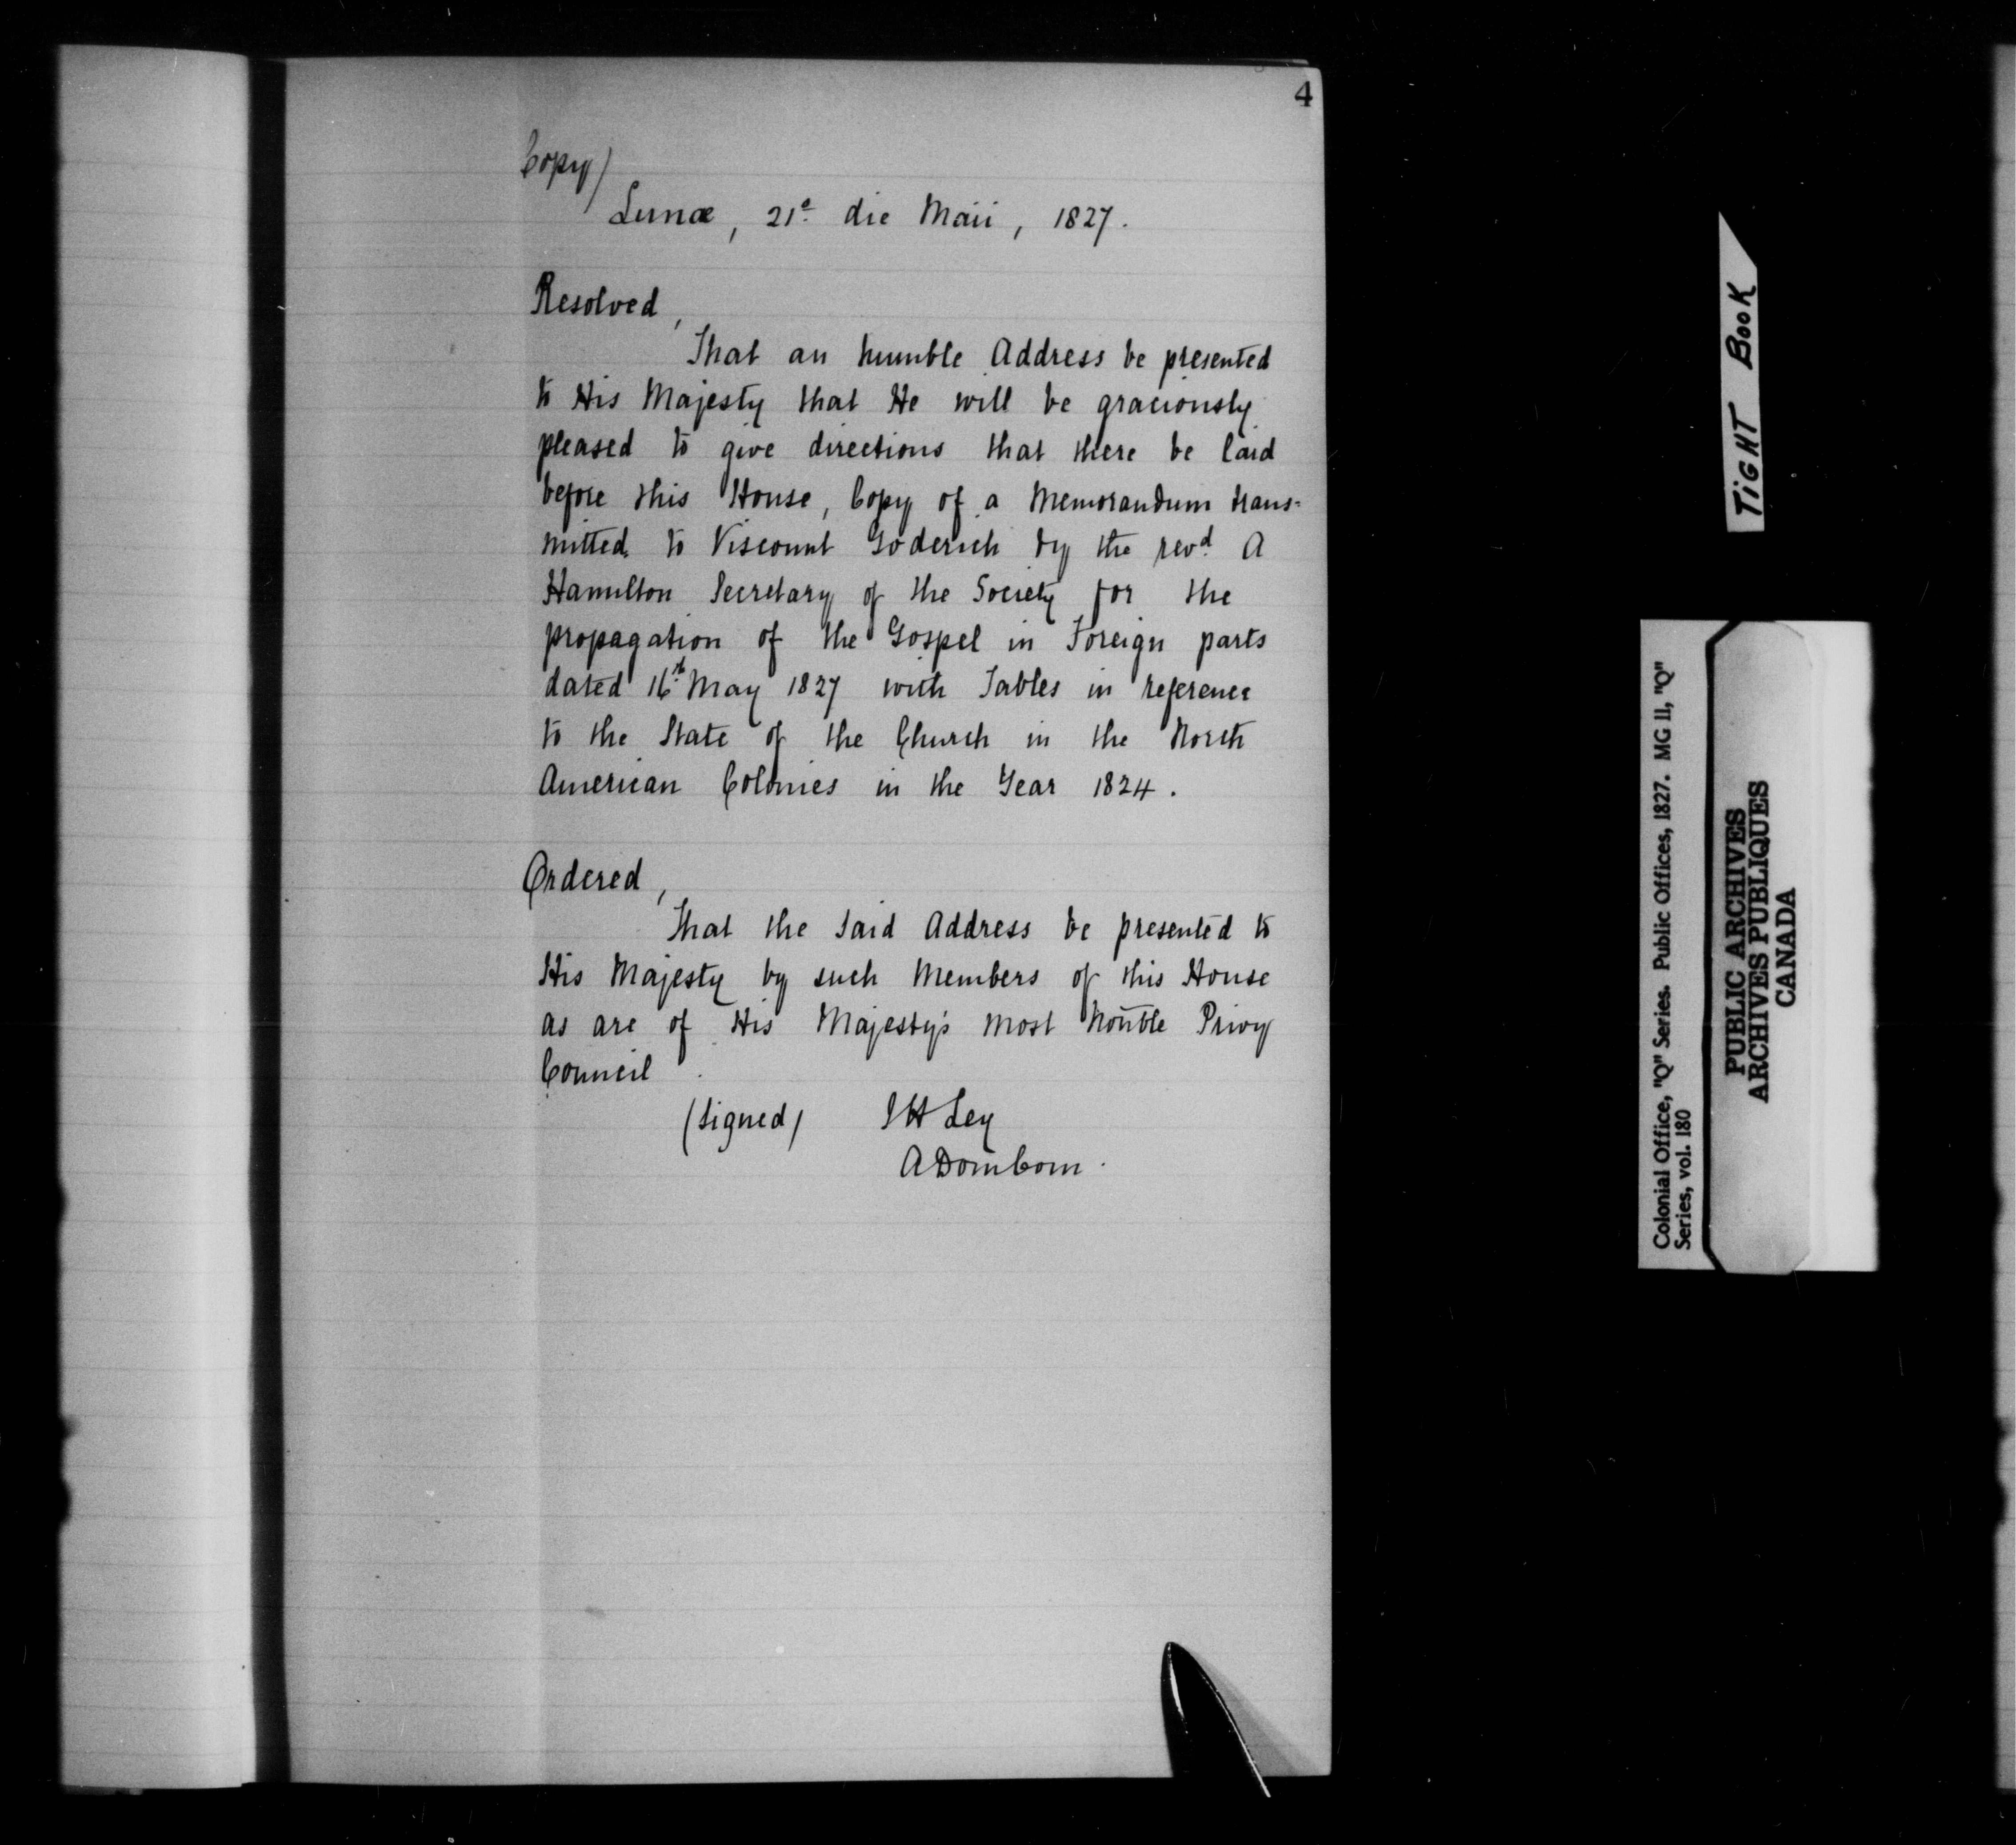 4
Copy)
Lunæ, 21º die Maii, 1827.
Resolved,
That an humble Address be presented
to His Majesty that He will be graciously
pleased to give directions that there be laid
before this House, Copy of a Memorandum trans-
mitted to Viscount Goderich by the revd A
Hamilton Secretary of the Society for the
propagation of the Gospel in Foreign parts
dated 16th May 1827 with Tables in reference
to the State of the Church in the North
American Colonies in the Year 1824.
Ordered,
That the said Address be presented to
His Majesty by such Members of this House
as are of His Majesty's most honble Privy
Council.
(signed) J H Ley
TIGHT BOOK
Colonial Office, "Q" Series. Public Offices, 1827. MG 11, "Q"
Series, vol. 180
PUBLIC ARCHIVES
ARCHIVES PUBLIQUES
CANADA